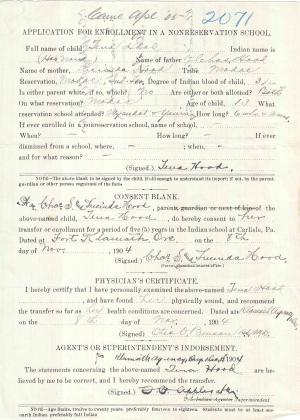 Came Apr. 05
2071
APPLICATION FOR ENROLLMENT IN A NONRESERVATION SCHOOL.
Full name of child Tena Hood Indian name is
name of father Charles Hood
Name of mother Lucinda Hood Tribe Modoc
Reservation, Modoc, Degree of Indian blood,
Is either parent white, if so, which? No Are either or both allotted? Both
On what reservation? Modoc Age of child, 13 What
reservation school attended? How long?
If ever enrolled in a nonreservation school, name of school, —
When? — How long? — If ever
dismissed from a school, where — ; when —
and for what reason? —
(Signed.) Tena Hood.
NOTE—The above blank to be signed by the child, (if old enough to understand its import); if not, by the parent, guardian or other person cognizant of the facts
CONSENT BLANK.
Chas S. & Lucinda Hood, parent, guardian or next of kin of the
above-named child, Tena Hood, do hereby consent to her
transfer or enrollment for a period of five (5) years in the Indian school at Carlisle, Pa.
Dated at Fort Klamath Ore. on the 8th
day of Nov, 1904
(Signed.) Chas S. & Lucinda Hood.
PHYSICIAN'S CERTIFICATE.
I hereby certify that I have personally examined the above-named Tena Hood
, and have found her physically sound, and recommend
the transfer so far as her health conditions are concerned. Dated at Klamath Agency, Ore.
on the 8th day of Nov, 1904
(Signed.)
AGENT'S OR SUPERINTENDENT'S INDORSEMENT.
Klamath Agency, 1904
The statements concerning the above-named Tena Hood are be-
lieved by me to be correct, and I hereby recommend the transfer.
(Signed.)
U. S. Indian Agent or Superintendent.
NOTE—Age limits, twelve to twenty years, preferably fourteen to eighteen. Students must be at least one-fourth Indian, preferably full Indian